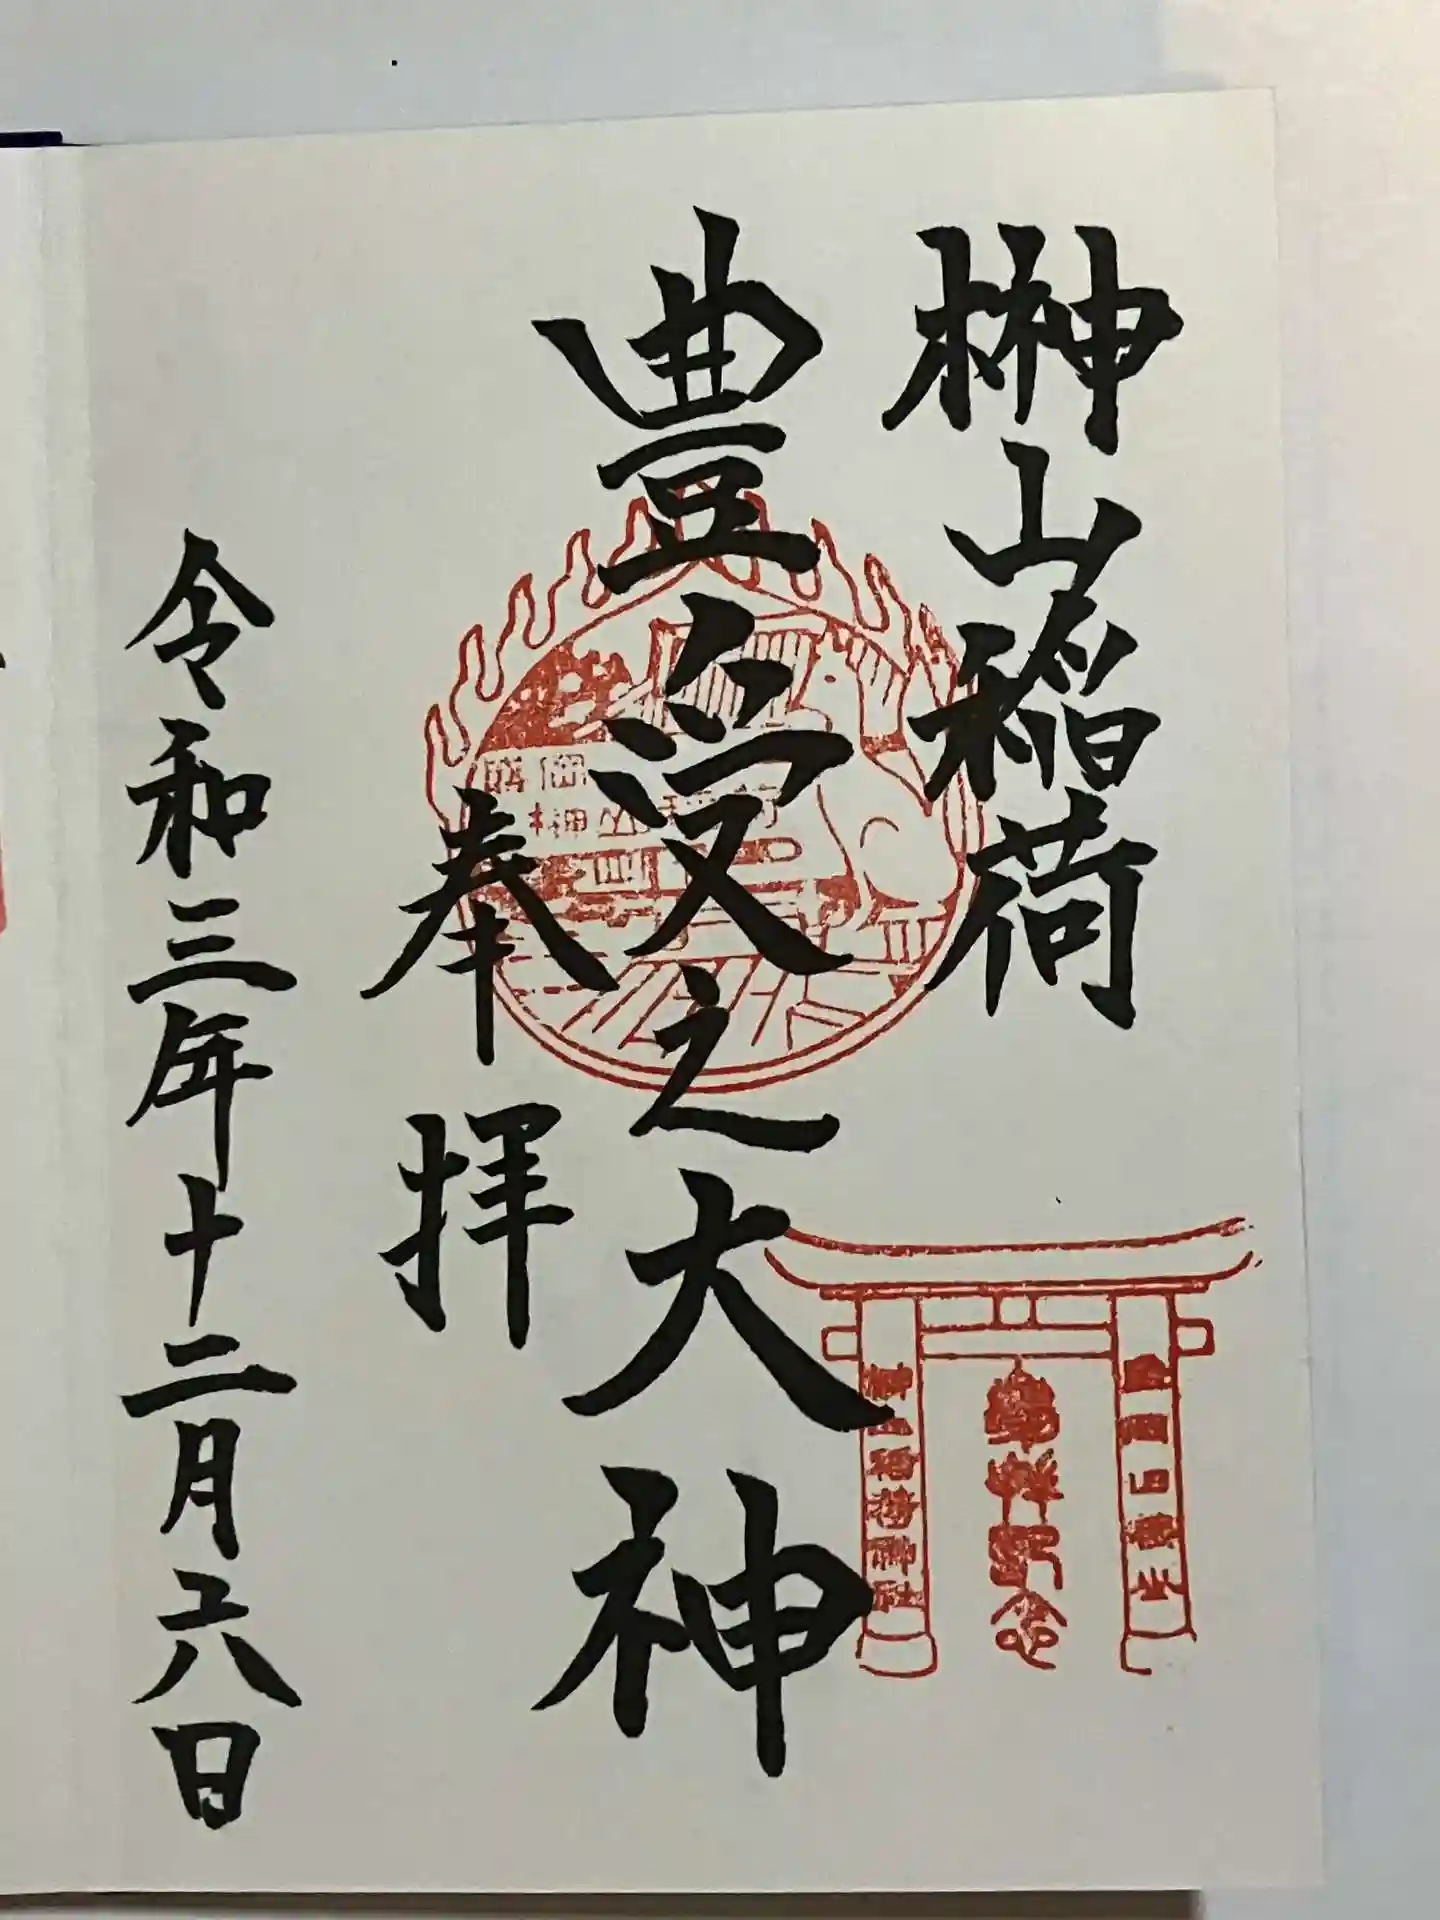 榊山稲荷
豊受之大神
奉拝
令和三年十二月六日
盛岡
榊山稲荷
参拝記念
稲荷神社